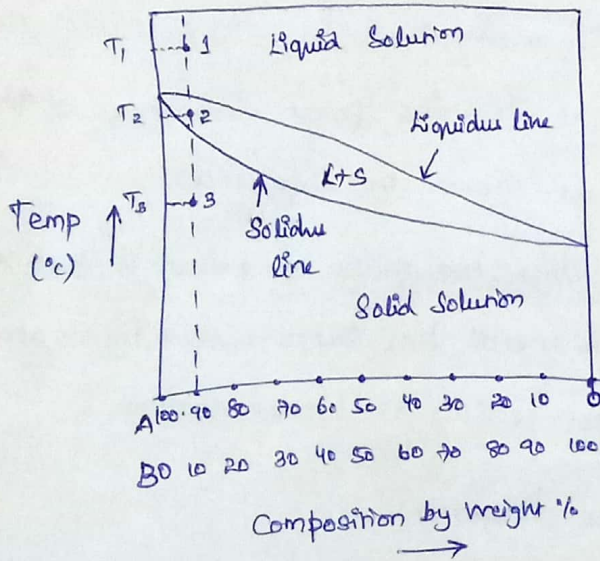 T1
1
Liquid Solution
T2
2
Liquidus line
L+S
T3
3
Temp
(°c)
Solidus
line
Solid Solution
A 100 90 80 70 60 50 40 30 20 10 0
B 0 10 20 30 40 50 60 70 80 90 100
Composition by weight %